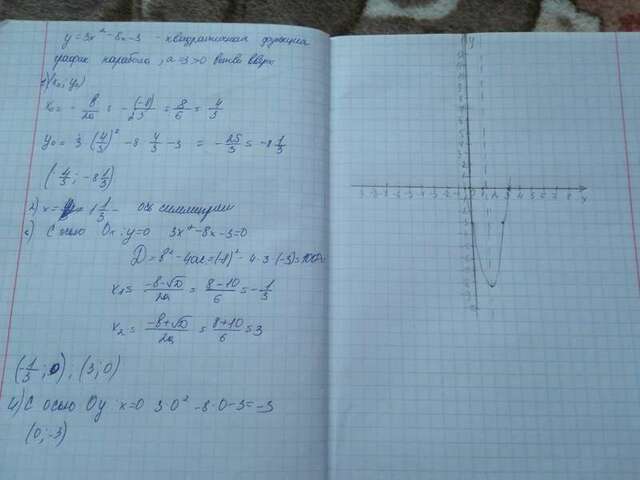 y=3x²-8x-3 - квадратичная функция
график парабола, a=3>0 ветви вверх
1) (x₀; y₀)
x₀= - b/2a = - (-8)/2·3 = 8/6 = 4/3
y₀= 3·(4/3)² -8·4/3 -3 = - 25/3 = -8 1/3
(4/3; -8 1/3)
2) x= 1 1/3 - ось симметрии
с осью Ox: y=0 3x²-8x-3=0
D= b²-4ac=(-8)²-4·3·(-3)=100
x₁= -b-√D/2a = 8-10/6 = - 1/3
x₂= -b+√D/2a = 8+10/6 = 3
(-1/3; 0); (3; 0)
4) С осью Oy: x=0 3·0²-8·0-3=-3
(0; -3)
y
x